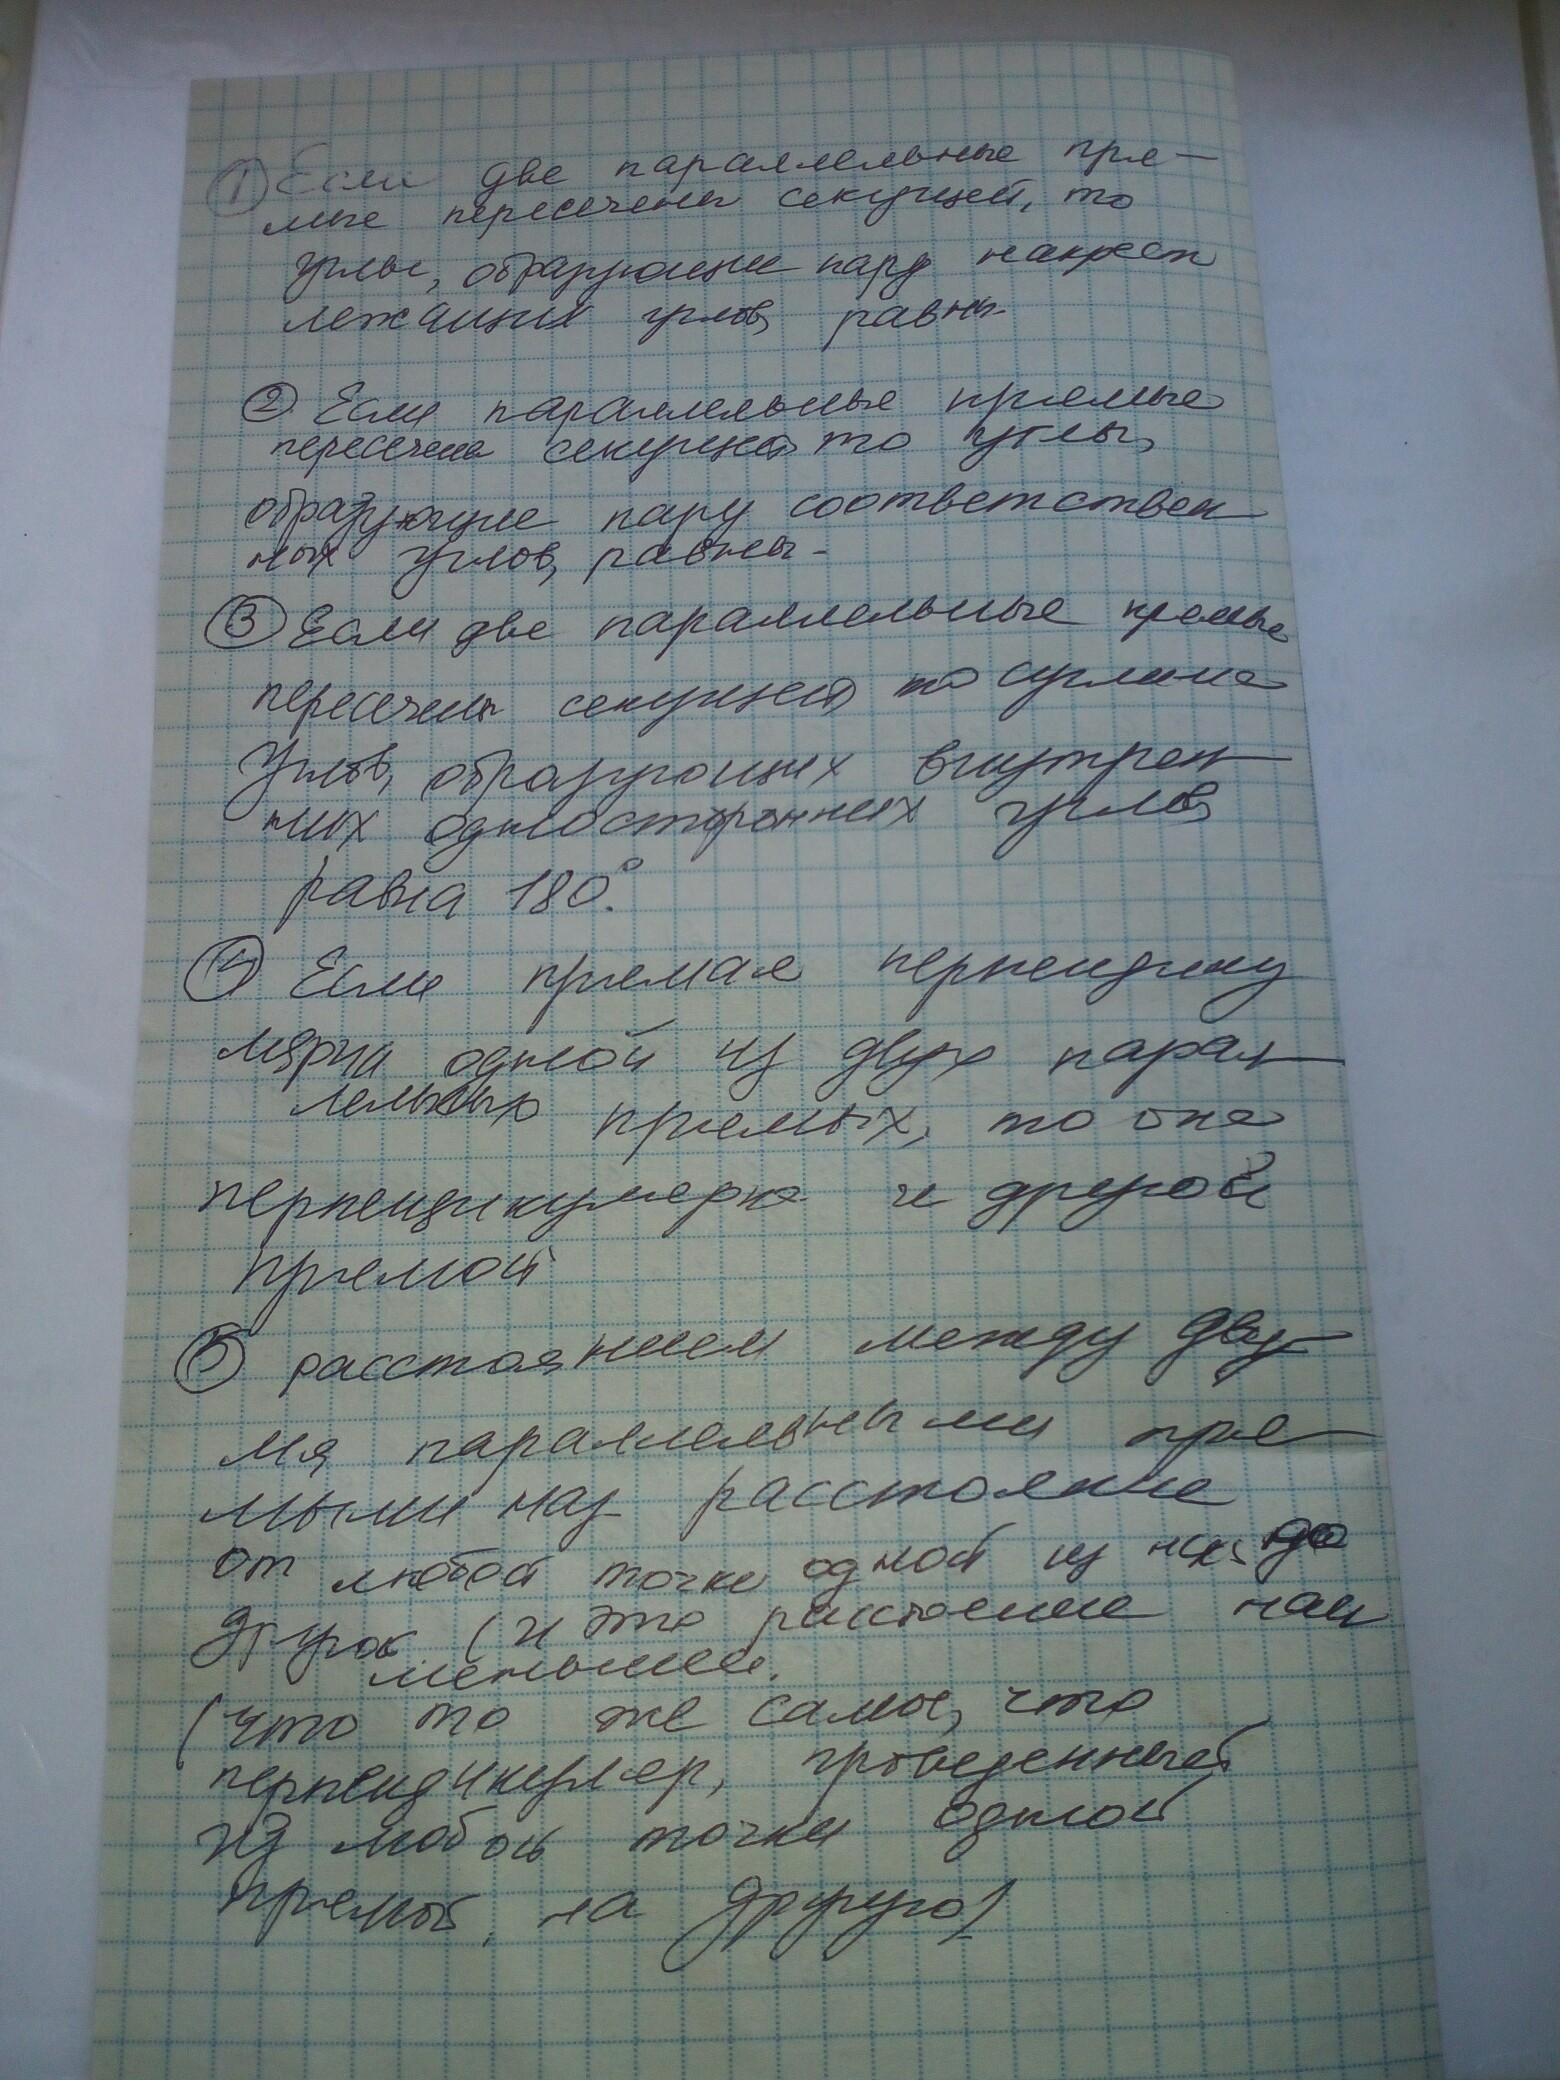 ① Если две параллельные пря-
мые пересечены секущей, то
углы, образующие пару накрест
лежащих углов, равны.
② Если параллельные прямые
пересечены секущей то углы,
образующие пару соответствен
ных углов, равны-
③ Если две параллельные прямые
пересечены секущей, то сумма
углов, образующих внутрен
них односторонних углов,
равна 180°.
④ Если прямая перпендику
лярна одной из двух парал
лельных прямых, то она
перпендикулярна и другой
прямой
⑤ расстоянием между дву-
мя параллельными пря-
мыми наз расстояние
от любой точки одной из них до
другой (и это расстояние наи
меньшее.
(что то же самое, что
перпендикуляр, проведенный
из любой точки одной
прямой, на другую)